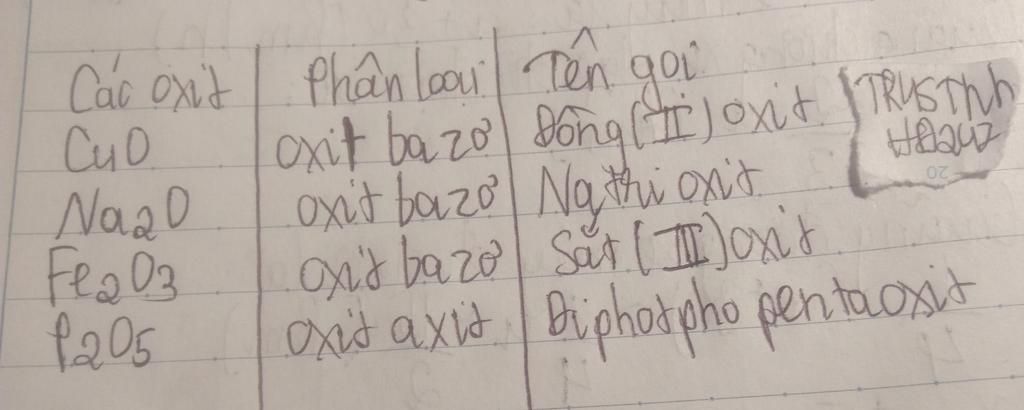 Các oxit Phân loại Tên gọi
CuO oxit bazơ Đồng (II) oxit
Na2O oxit bazơ Natri oxit
Fe2O3 oxit bazơ Sắt (III) oxit
P2O5 oxit axit Điphotpho pentaoxit
TRUSThh
20